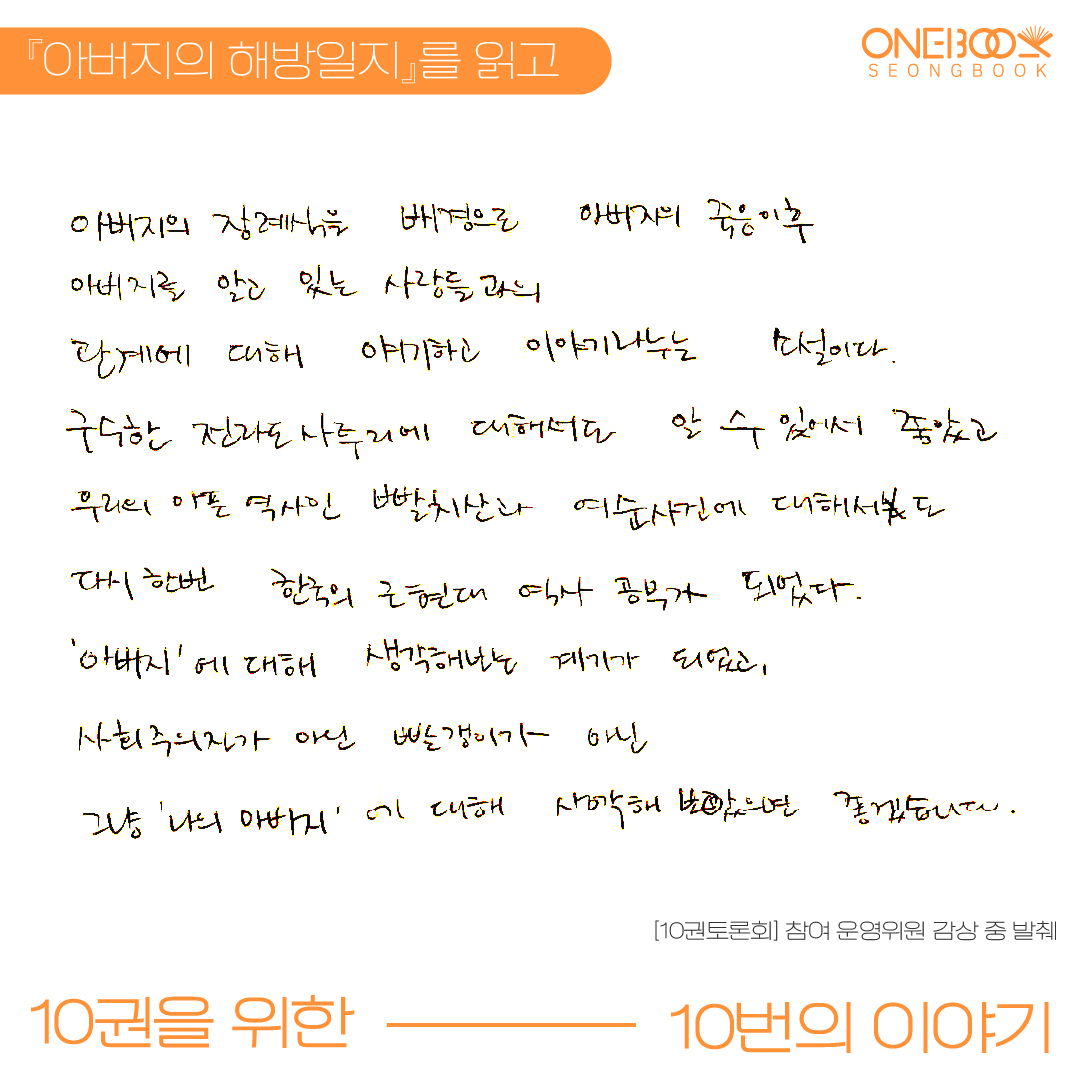 『아버지의 해방일지』를 읽고
ONEBOOK
SEONGBOOK
아버지의 장례식을 배경으로 아버지의 죽음이후
아버지를 알고 있는 사람들과의
관계에 대해 얘기하고 이야기나누는 소설이다.
구수한 전라도 사투리에 대해서도 알 수 있어서 좋았고
우리의 아픈 역사인 빨치산과 여순사건에 대해서도
다시 한번 한국의 근현대 역사 공부가 되었다.
'아버지'에 대해 생각해보는 계기가 되었고,
사회주의자가 아닌 빨갱이가 아닌
그냥 '나의 아버지'에 대해 생각해 보았으면 좋겠습니다.
[10권토론회] 참여 운영위원 감상 중 발췌
10권을 위한 10번의 이야기